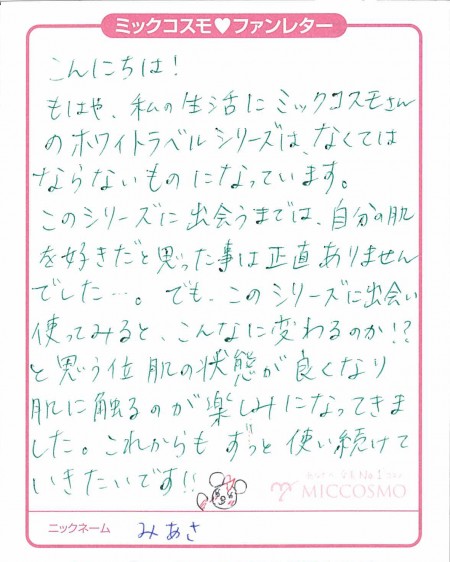 ミックコスモ♥ファンレター
こんにちは!
もはや、私の生活にミックコスモさん
のホワイトラベルシリーズは、なくては
ならないものになっています。
このシリーズに出会うまでは、自分の肌
を好きだと思った事は正直ありません
でした…。でも、このシリーズに出会い
使ってみると、こんなに変わるのか!?
と思う位肌の状態が良くなり
肌に触るのが楽しみになってきま
した。これからもずっと使い続けて
いきたいです!!
MICCOSMO
ニックネーム みあさ